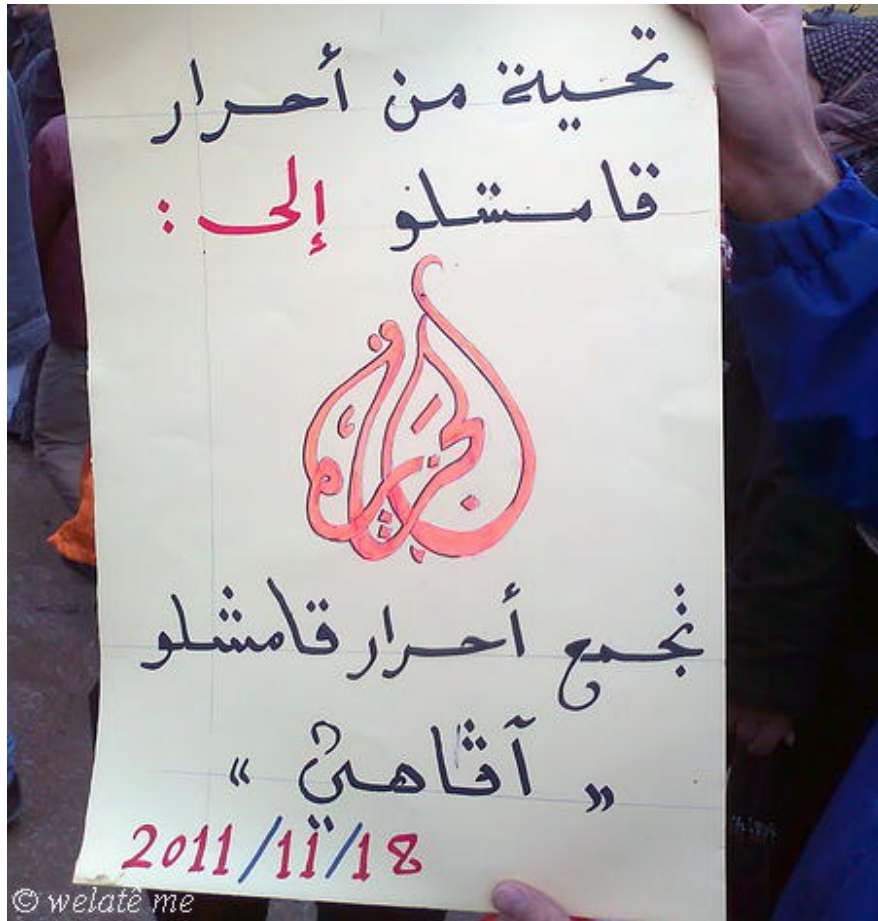 تحية من أحرار
قامشلو إلى :
الجزيرة
تجمع أحرار قامشلو
« آڤاهي »
2011/11/18
© welatê me